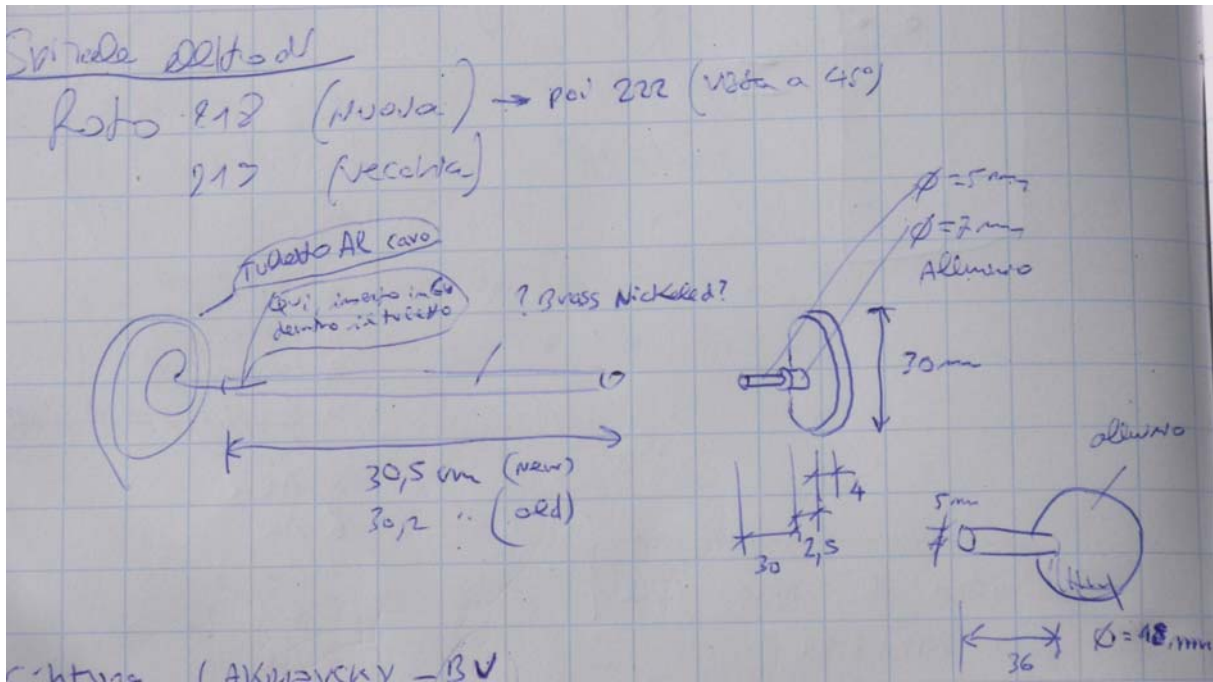 Spirale
Foto 218 (Nuova) → poi 222 (vista a 45°)
217 (vecchia)
Tubetto Al cavo
Qui, inserto in
dentro il tubetto
? Brass Nickeled?
30,5 cm (new)
30,2 " (old)
Ø=5 mm
Ø=7 mm
Alluminio
30 mm
4
2,5
30
alluminio
5 mm
36
Ø=18 mm